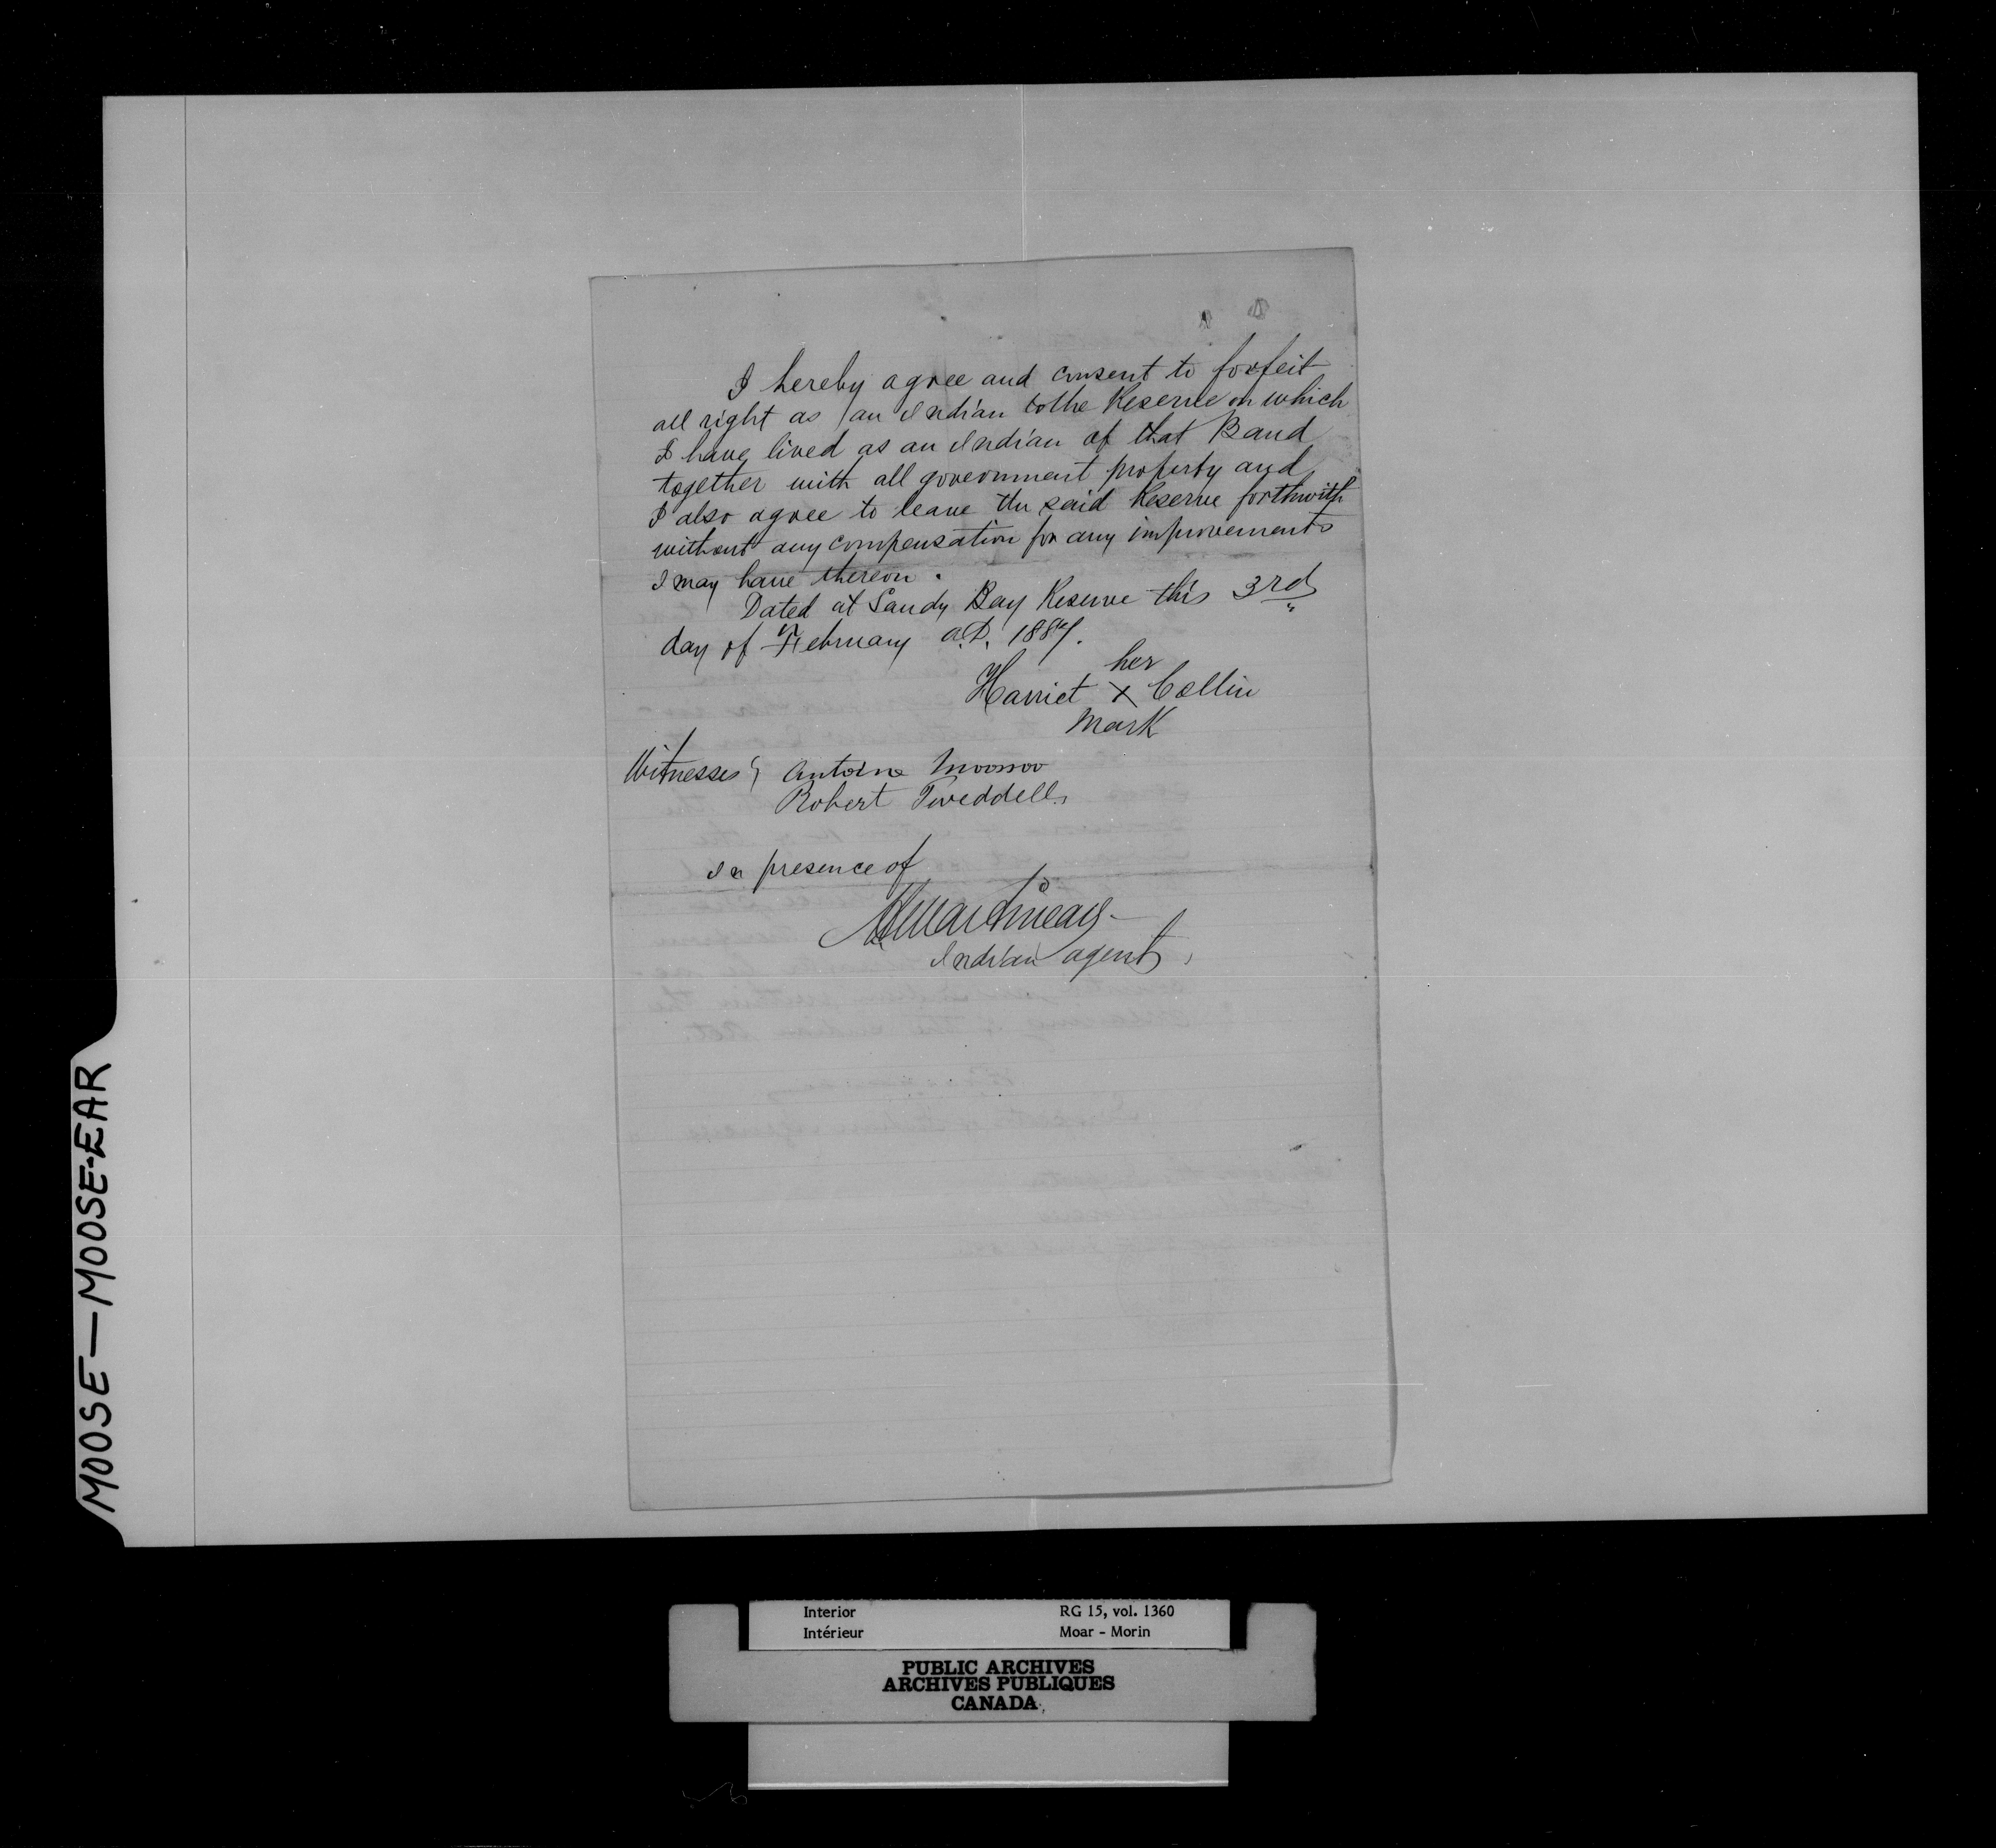 I hereby agree and consent to forfeit
all right as an Indian to the Reserve on which
I have lived as an Indian of that Band
together with all government property and
I also agree to leave the said Reserve forthwith
without any compensation for any improvements
I may have thereon.
Dated at Sandy Bay Reserve this 3rd
day of February A.D. 1887.
her
Harriet X Collin
Mark
Witnesses } Antoine Moosoo
Robert Tweddell
In presence of
H Martineau
Indian agent
MOOSE—MOOSE-EAR
Interior RG 15, vol. 1360
Intérieur Moar - Morin
PUBLIC ARCHIVES
ARCHIVES PUBLIQUES
CANADA